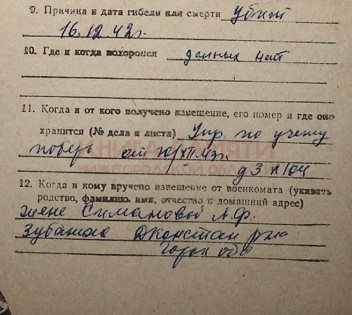 9. Причина и дата гибели или смерти убит
16.12.42г.
10. Где и когда похоронен данных нет
11. Когда и от кого получено извещение, его номер и где оно
хранится (№ дела и листа) Упр. по учету
потерь от
д3 л 104
12. Когда и кому вручено извещение от военкомата (указать
родство, фамилию, имя, отчество и домашний адрес)
жене Симановой А.Ф.
Зубаниха Дконстан р-на
Горьк обл